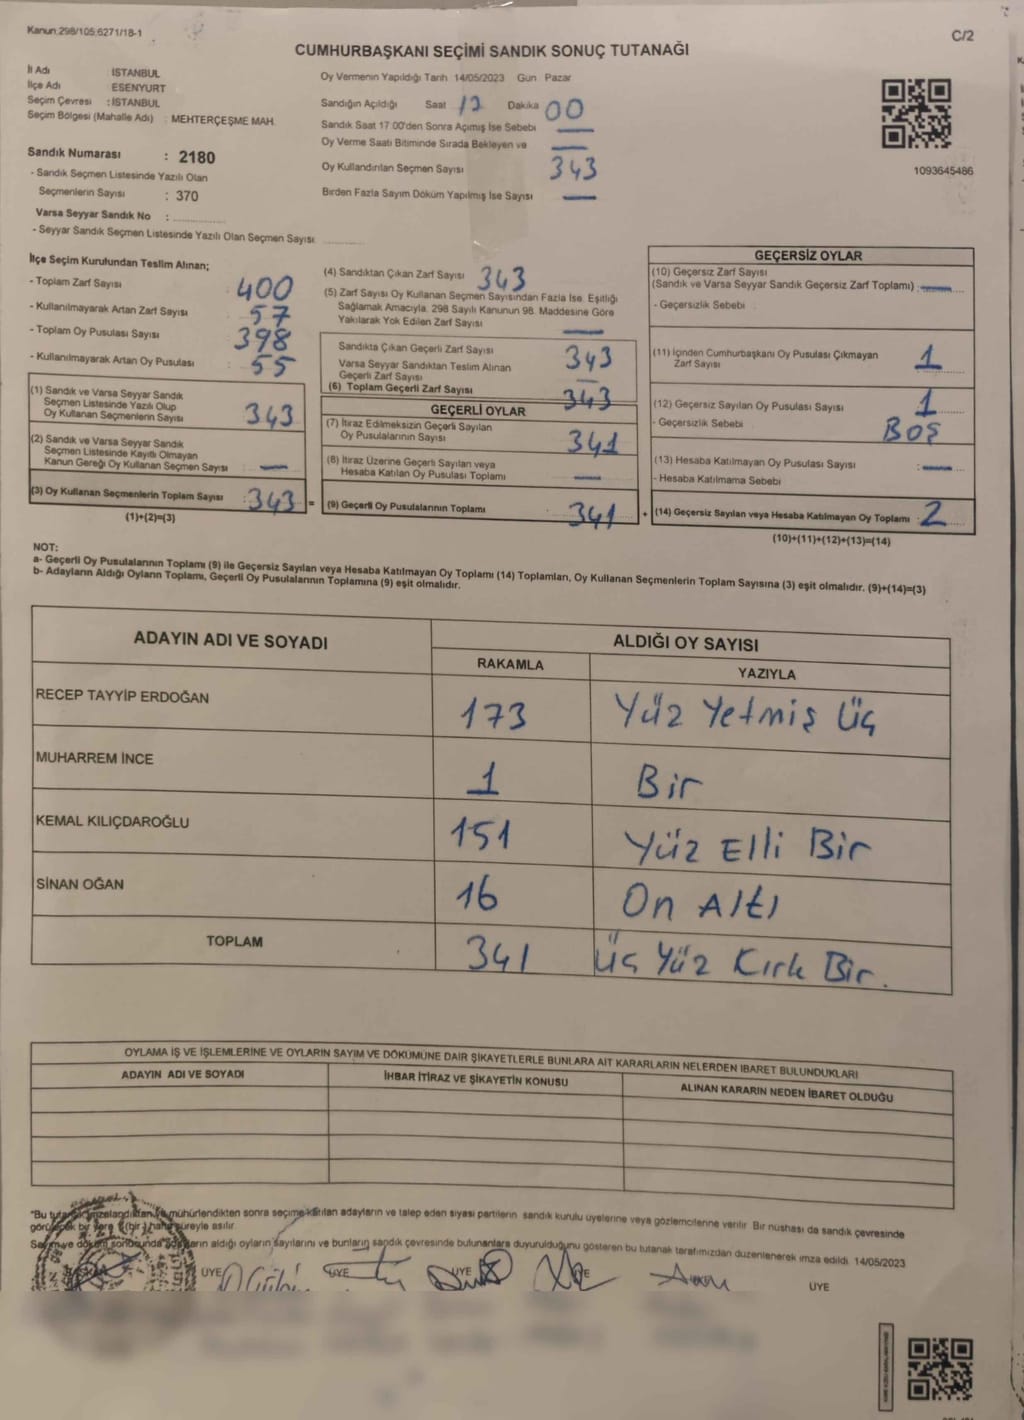 Kanun:298/105;6271/18-1
C/2
CUMHURBAŞKANI SEÇİMİ SANDIK SONUÇ TUTANAĞI
İl Adı : İSTANBUL
İlçe Adı : ESENYURT
Seçim Çevresi : İSTANBUL
Seçim Bölgesi (Mahalle Adı) : MEHTERÇEŞME MAH.
Sandık Numarası : 2180
- Sandık Seçmen Listesinde Yazılı Olan
Seçmenlerin Sayısı : 370
Varsa Seyyar Sandık No :
- Seyyar Sandık Seçmen Listesinde Yazılı Olan Seçmen Sayısı:
Oy Vermenin Yapıldığı Tarih 14/05/2023 Gün Pazar
Sandığın Açıldığı Saat 17 Dakika 00
Sandık Saat 17.00'den Sonra Açımış İse Sebebi —
Oy Verme Saati Bitiminde Sırada Bekleyen ve —
Oy Kullandırılan Seçmen Sayısı 343
Birden Fazla Sayım Döküm Yapılmış İse Sayısı —
1093645486
İlçe Seçim Kurulundan Teslim Alınan;
- Toplam Zarf Sayısı 400
- Kullanılmayarak Artan Zarf Sayısı 57
- Toplam Oy Pusulası Sayısı 398
- Kullanılmayarak Artan Oy Pusulası 55
(1) Sandık ve Varsa Seyyar Sandık
Seçmen Listesinde Yazılı Olup
Oy Kullanan Seçmenlerin Sayısı 343
(2) Sandık ve Varsa Seyyar Sandık
Seçmen Listesinde Kayıtlı Olmayan
Kanun Gereği Oy Kullanan Seçmen Sayısı —
(3) Oy Kullanan Seçmenlerin Toplam Sayısı : 343 =
(1)+(2)=(3)
(4) Sandıktan Çıkan Zarf Sayısı 343
(5) Zarf Sayısı Oy Kullanan Seçmen Sayısından Fazla İse, Eşitliği
Sağlamak Amacıyla, 298 Sayılı Kanunun 98. Maddesine Göre
Yakılarak Yok Edilen Zarf Sayısı —
Sandıkta Çıkan Geçerli Zarf Sayısı 343
Varsa Seyyar Sandıktan Teslim Alınan
Geçerli Zarf Sayısı —
(6) Toplam Geçerli Zarf Sayısı 343
GEÇERLİ OYLAR
(7) İtiraz Edilmeksizin Geçerli Sayılan
Oy Pusulalarının Sayısı 341
(8) İtiraz Üzerine Geçerli Sayılan veya
Hesaba Katılan Oy Pusulası Toplamı —
(9) Geçerli Oy Pusulalarının Toplamı 341 +
GEÇERSİZ OYLAR
(10) Geçersiz Zarf Sayısı
(Sandık ve Varsa Seyyar Sandık Geçersiz Zarf Toplamı) : —
- Geçersizlik Sebebi
(11) İçinden Cumhurbaşkanı Oy Pusulası Çıkmayan
Zarf Sayısı 1
(12) Geçersiz Sayılan Oy Pusulası Sayısı 1
- Geçersizlik Sebebi BOŞ
(13) Hesaba Katılmayan Oy Pusulası Sayısı : —
- Hesaba Katılmama Sebebi
(14) Geçersiz Sayılan veya Hesaba Katılmayan Oy Toplamı : 2
(10)+(11)+(12)+(13)=(14)
NOT:
a- Geçerli Oy Pusulalarının Toplamı (9) ile Geçersiz Sayılan veya Hesaba Katılmayan Oy Toplamı (14) Toplamları, Oy Kullanan Seçmenlerin Toplam Sayısına (3) eşit olmalıdır. (9)+(14)=(3)
b- Adayların Aldığı Oyların Toplamı, Geçerli Oy Pusulalarının Toplamına (9) eşit olmalıdır.
ADAYIN ADI VE SOYADI
ALDIĞI OY SAYISI
RAKAMLA YAZIYLA
RECEP TAYYİP ERDOĞAN 173 Yüz Yetmiş Üç
MUHARREM İNCE 1 Bir
KEMAL KILIÇDAROĞLU 151 Yüz Elli Bir
SİNAN OĞAN 16 On Altı
TOPLAM 341 Üç Yüz Kırk Bir.
OYLAMA İŞ VE İŞLEMLERİNE VE OYLARIN SAYIM VE DÖKÜMÜNE DAİR ŞİKAYETLERLE BUNLARA AİT KARARLARIN NELERDEN İBARET BULUNDUKLARI
ADAYIN ADI VE SOYADI İHBAR İTİRAZ VE ŞİKAYETİN KONUSU ALINAN KARARIN NEDEN İBARET OLDUĞU
"Bu tutanak imzalandıktan ve mühürlendikten sonra seçime katılan adayların ve talep eden siyasi partilerin sandık kurulu üyelerine veya gözlemcilerine verilir. Bir nüshası da sandık çevresinde
görülecek bir yere 1(bir) hafta süreyle asılır.
Sayım ve döküm sonucunda adayların aldığı oyların sayılarını ve bunların sandık çevresinde bulunanlara duyurulduğunu gösteren bu tutanak tarafımızdan düzenlenerek imza edildi. 14/05/2023
ÜYE ÜYE ÜYE ÜYE ÜYE